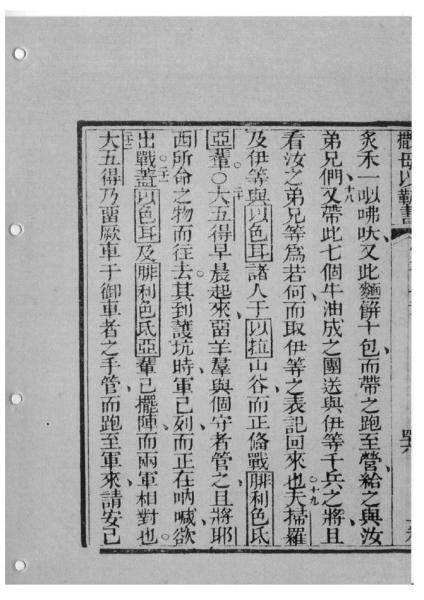 撒母以勒書
炙禾一㕽咈吙又此麵餅十包而帶之跑至營給之與汝
弟兄們十八又帶此七個牛油成之團送與伊等千兵之將且
看汝之弟兄等為若何而取伊等之表記回來也十九夫掃羅
及伊等與以色耳諸人于以拉山谷而正俻戰腓利色氏
亞輩○二十大五得早晨起來留羊羣與個守者管之且將耶
西所命之物而往去其到護坑時軍已列而正在吶喊欲
出戰二一蓋以色耳及腓利色氏亞輩已擺陣而兩軍相對也
二二大五得乃留厥車于御車者之手管而跑至軍來請安己